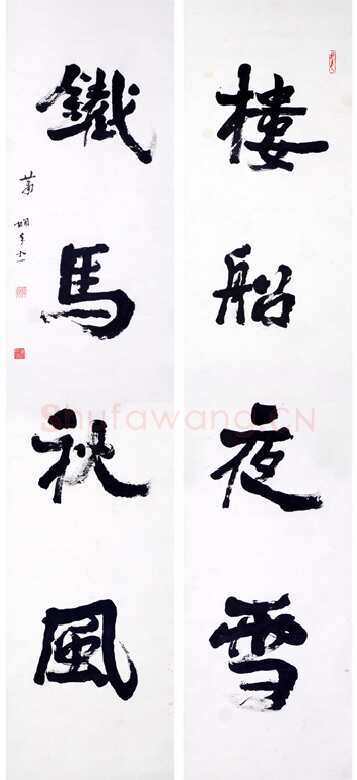 樓船夜雪
鐵馬秋風
蕭嫻
Shufawang.CN